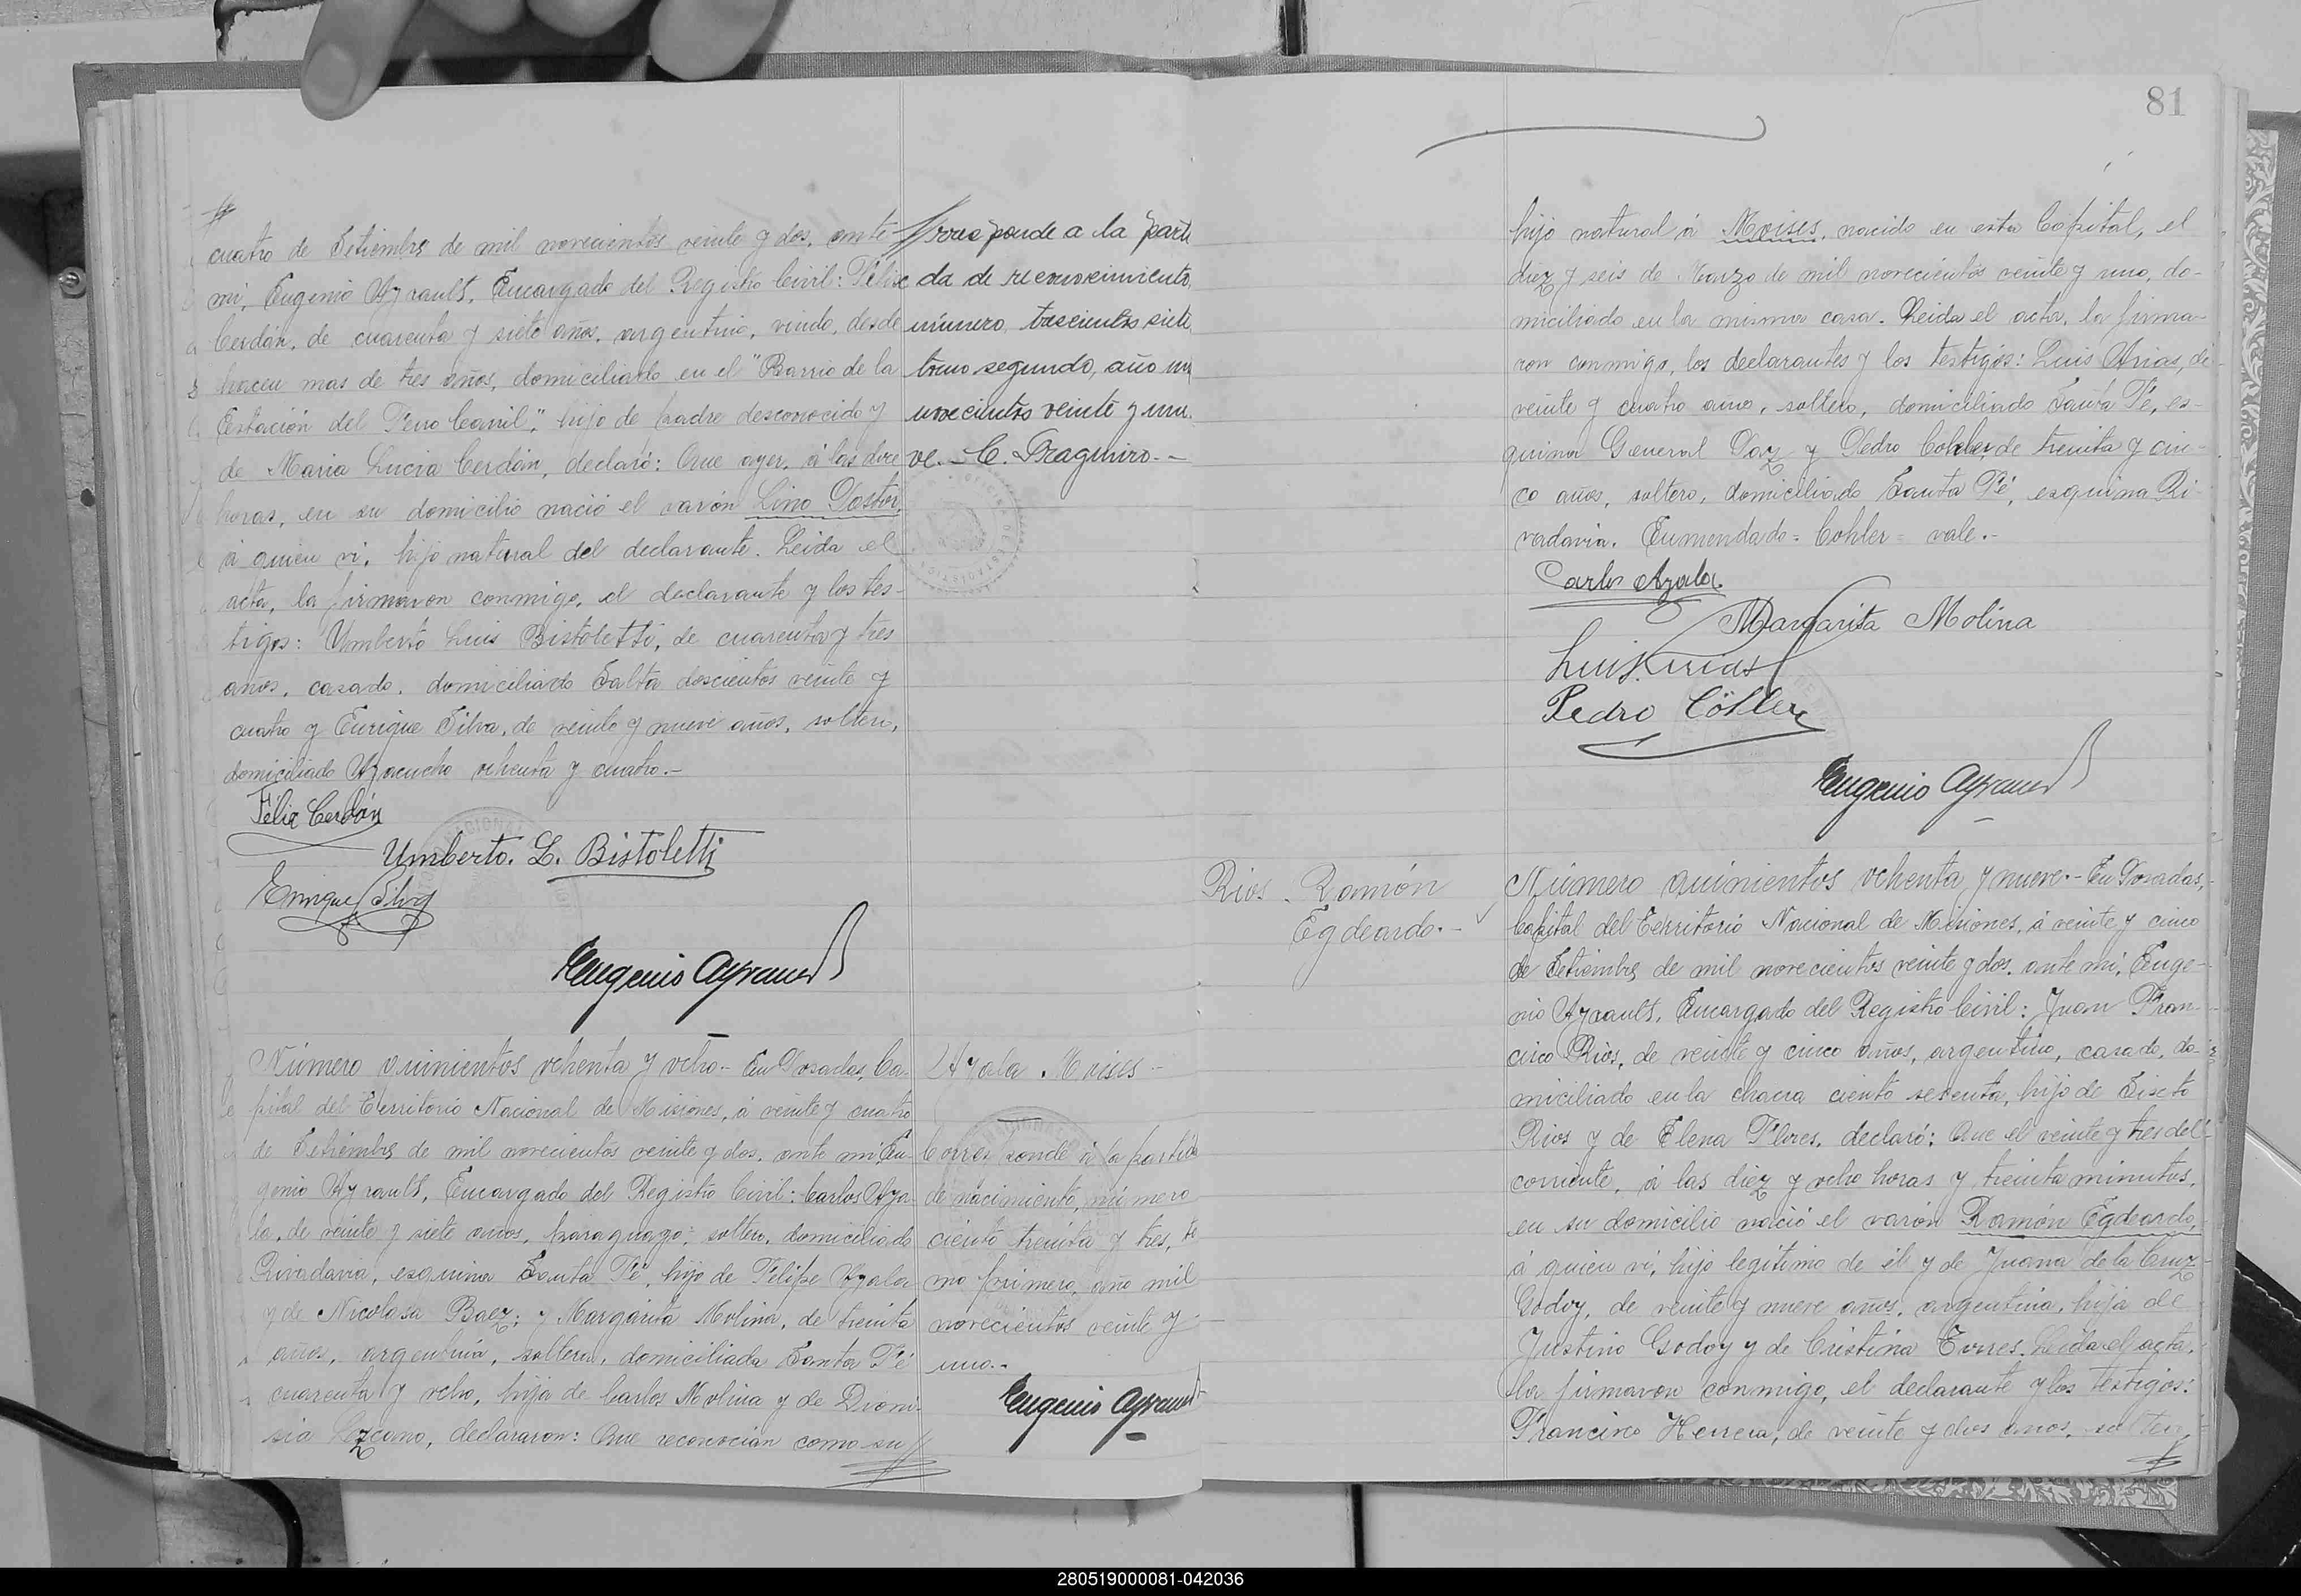 cuatro de Setiembre de mil novecientos veinte y dos, ante
mi, Eugenio Ayrault, Encargado del Registro Civil: Félix
Cerdán, de cuarenta y siete años, argentino, viudo, desde
hacen mas de tres años, domiciliado en el "Barrio de la
Estación del Ferro Carril", hijo de padre desconocido y
de Maria Lucia Cerdán, declaró: Que ayer, á las doce
horas, en su domicilio nació el varón Lino Pastor,
á quien vi, hijo natural del declarante. Leida el
acta, la firmaron conmigo, el declarante y los tes-
tigos: Umberto Luis Bistoletti, de cuarenta y tres
años, casado, domiciliado Salta doscientos veinte y
cuatro y Enrique Silva, de veinte y nueve años, soltero,
domiciliado Ayacucho ochenta y cuatro.-
Félix Cerdán
Umberto. L. Bistoletti
Enrique Silva
Eugenio Ayrault
Corresponde a la parti
da de reconocimiento,
número trescientos siete,
tomo segundo, año mil
novecientos veinte y nue
ve.-
Número quinientos ochenta y ocho.- En Posadas, Ca-
pital del Territorio Nacional de Misiones, á veinte y cuatro
de Setiembre de mil novecientos veinte y dos, ante mi, Eu-
genio Ayrault, Encargado del Registro Civil: Carlos Aya-
la, de veinte y siete años, paraguayo, soltero, domiciliado
Rivadavia, esquina Santa Fé, hijo de Felipe Ayala
y de Nicolasa Baez; y Margarita Molina, de treinta
años, argentina, soltera, domiciliada Santa Fé
cuarenta y ocho, hija de Carlos Molina y de Dioni-
sia Lezcano, declararon: Que reconocian como su
Ayala Moises-
Corresponde á la partida
de nacimiento, número
ciento treinta y tres, to
mo primero, año mil
novecientos veinte y
uno.-
Eugenio Ayrault
81
hijo natural á Moises, nacido en esta Capital, el
diez y seis de Marzo de mil novecientos veinte y uno, do-
miciliado en la misma casa. Leida el acta, la firma-
ron conmigo, los declarantes y los testigos: Luis Arias, de
veinte y cuatro años, soltero, domiciliado Santa Fé, es-
quina General Paz y Pedro Cohler, de treinta y cin-
co años, soltero, domiciliado Santa Fé, esquina Ri-
vadavia. Enmendado = Cohler = vale.-
Carlos Ayala
Margarita Molina
Luis Arias
Pedro Cöhler
Eugenio Ayrault
Rios Ramón
Egdeardo.-
Número quinientos ochenta y nueve.- En Posadas,
Capital del Territorio Nacional de Misiones, á veinte y cinco
de Setiembre de mil novecientos veinte y dos, ante mi, Euge-
nio Ayrault, Encargado del Registro Civil: Juan Fran-
cisco Rios, de veinte y cinco años, argentino, casado, do-
miciliado en la chacra ciento sesenta, hijo de Sixto
Rios y de Elena Flores, declaró: Que el veinte y tres del
corriente, á las diez y ocho horas y treinta minutos,
en su domicilio nació el varón Ramón Egdeardo,
á quien vi, hijo legitimo de él y de Juana de la Cruz
Godoy, de veinte y nueve años, argentina, hija de
Justino Godoy y de Cristina Torres. Leida el acta,
la firmaron conmigo, el declarante y los testigos:
Francisco Herrera, de veinte y dos años, soltero,
280519000081-042036